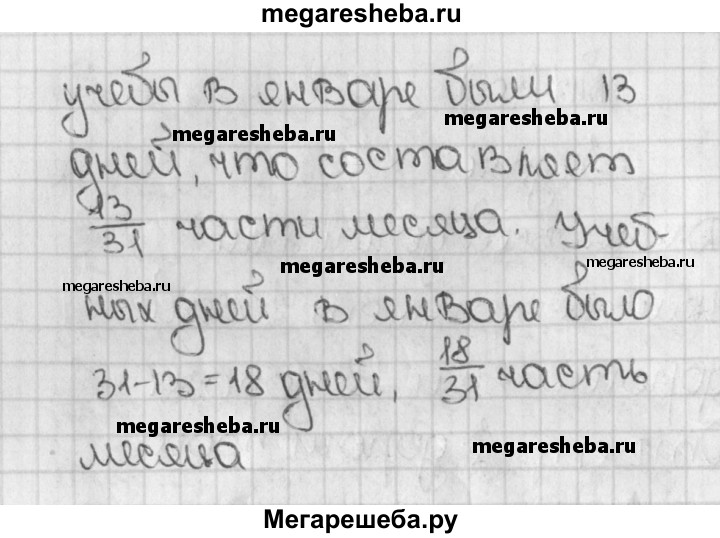 megaresheba.ru
учебы в январе были 13
megaresheba.ru
megaresheba.ru
дней, что составляет
13/31 части месяца. Учеб-
megaresheba.ru
megaresheba.ru
megaresheba.ru
ных дней в январе было
31-13=18 дней, 18/31 часть
megaresheba.ru
megaresheba.ru
месяца
Мегарешеба.ру